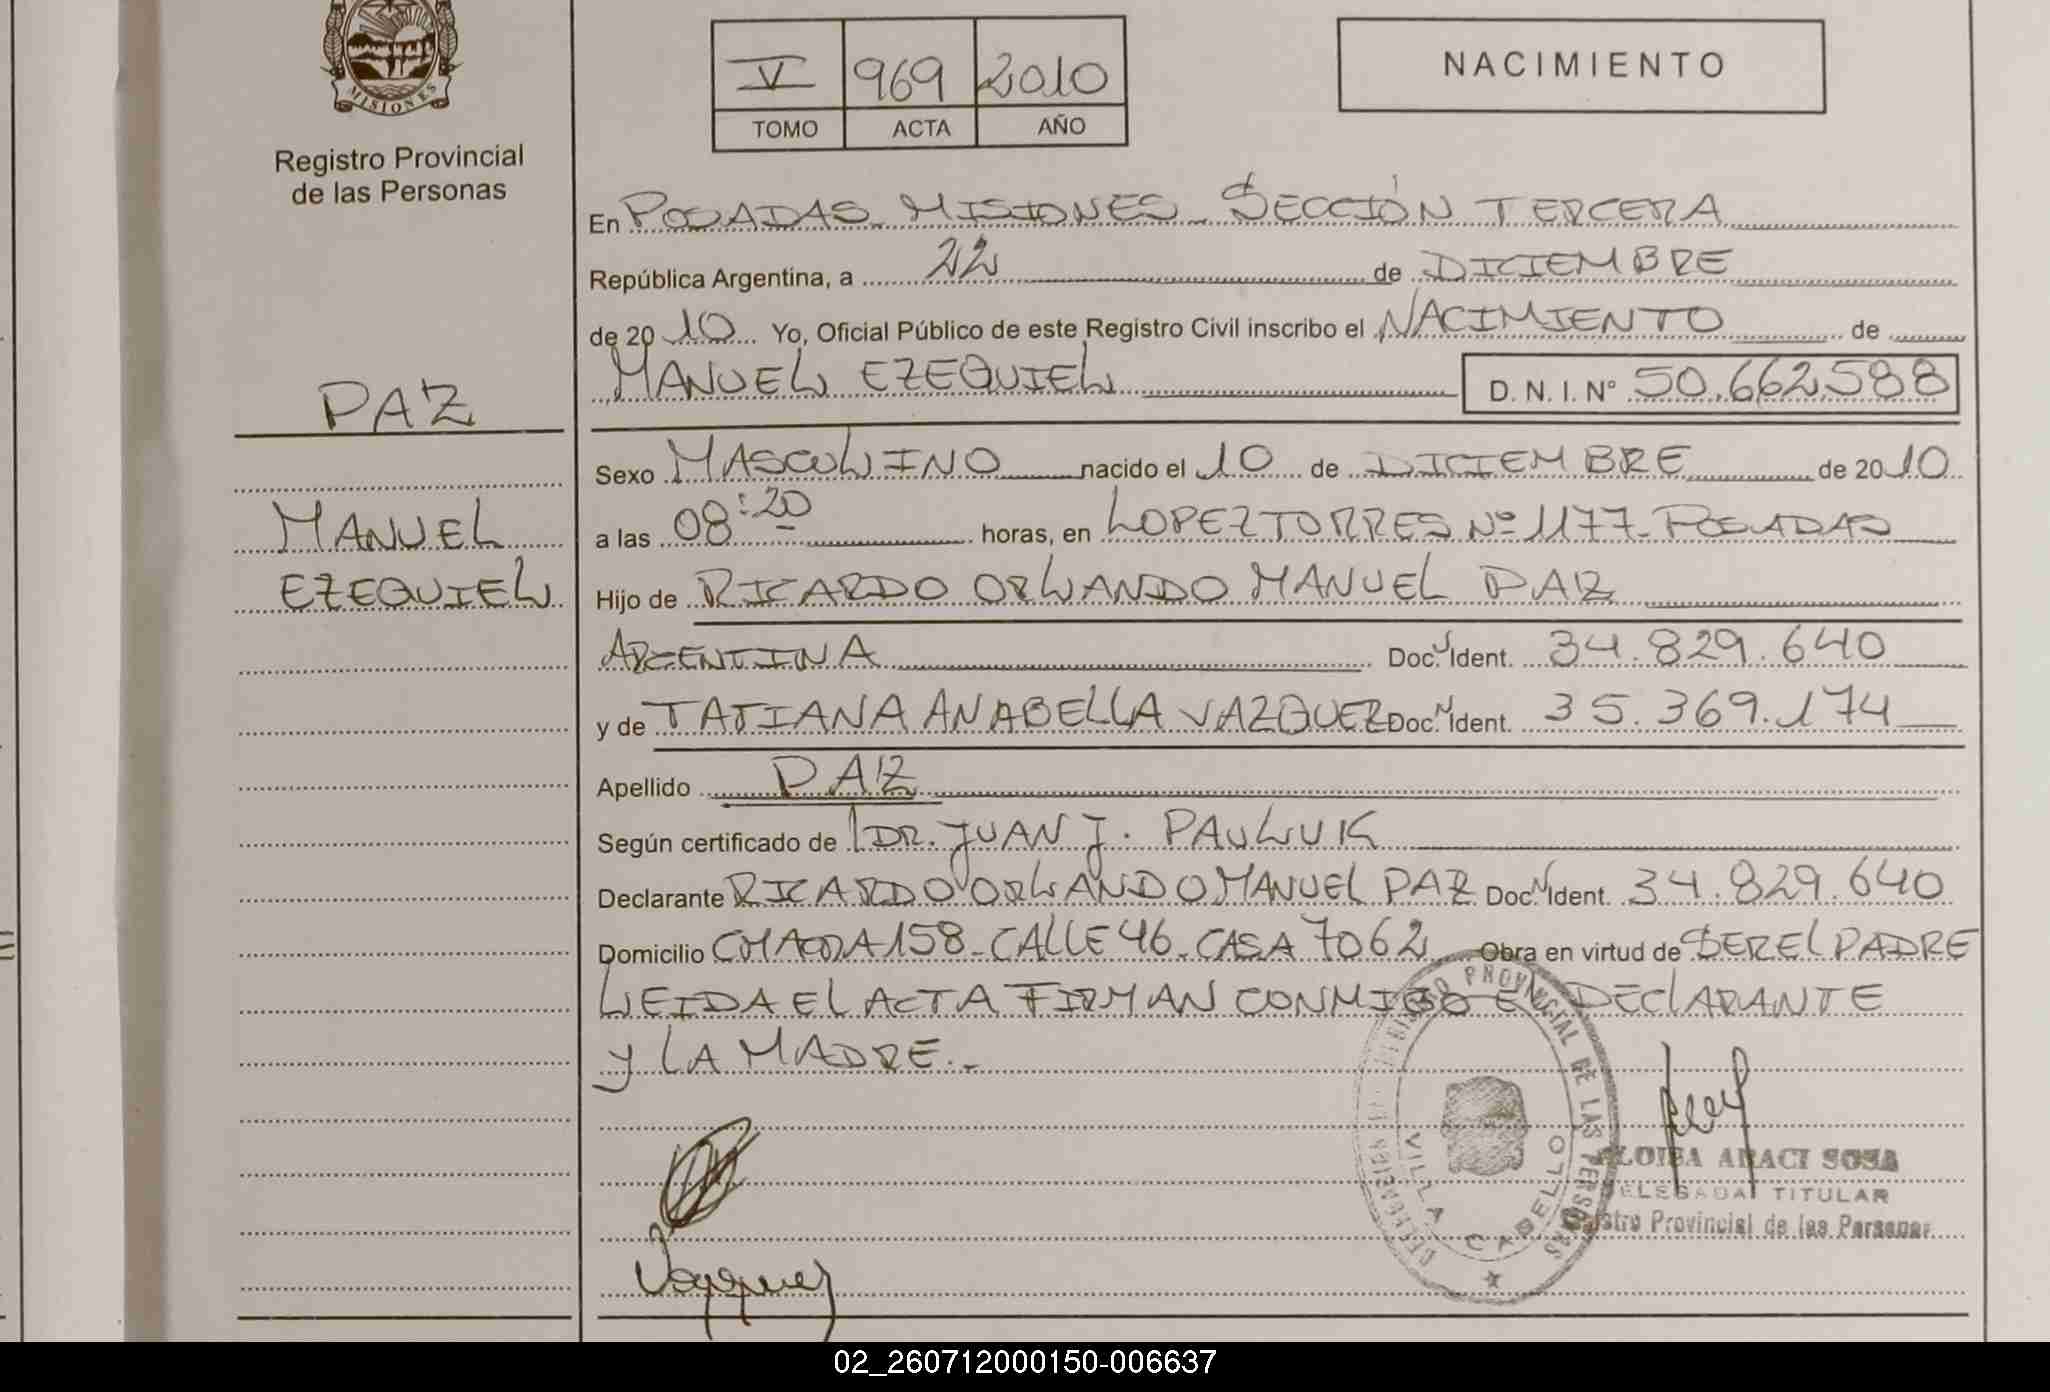 MISIONES
Registro Provincial
de las Personas
V 969 2010
TOMO ACTA AÑO
NACIMIENTO
En POSADAS MISIONES - SECCIÓN TERCERA
República Argentina, a 22 de DICIEMBRE
de 2010 Yo, Oficial Público de este Registro Civil inscribo el NACIMIENTO de
MANUEL EZEQUIEL D. N. I. Nº 50.662.588
PAZ
MANUEL
EZEQUIEL
Sexo MASCULINO nacido el 10 de DICIEMBRE de 2010
a las 08:20 horas, en LOPEZ TORRES Nº 1177 - POSADAS
Hijo de RICARDO ORLANDO MANUEL PAZ
ARGENTINA Doc. Ident. 34.829.640
y de TATIANA ANABELLA VAZQUEZ Doc. Ident. 35.369.174
Apellido PAZ
Según certificado de DR. JUAN J. PAULUK
Declarante RICARDO ORLANDO MANUEL PAZ Doc. Ident. 34.829.640
Domicilio CHACRA 158 - CALLE 46 - CASA 7062 Obra en virtud de SER EL PADRE
LEIDA EL ACTA FIRMAN CONMIGO EL DECLARANTE
Y LA MADRE.-
PROVINCIAL DE LAS PERSONAS
VILLA CABELLO
ARACI SOSA
DELEGADA TITULAR
Registro Provincial de las Personas
Vazquez
02_260712000150-006637